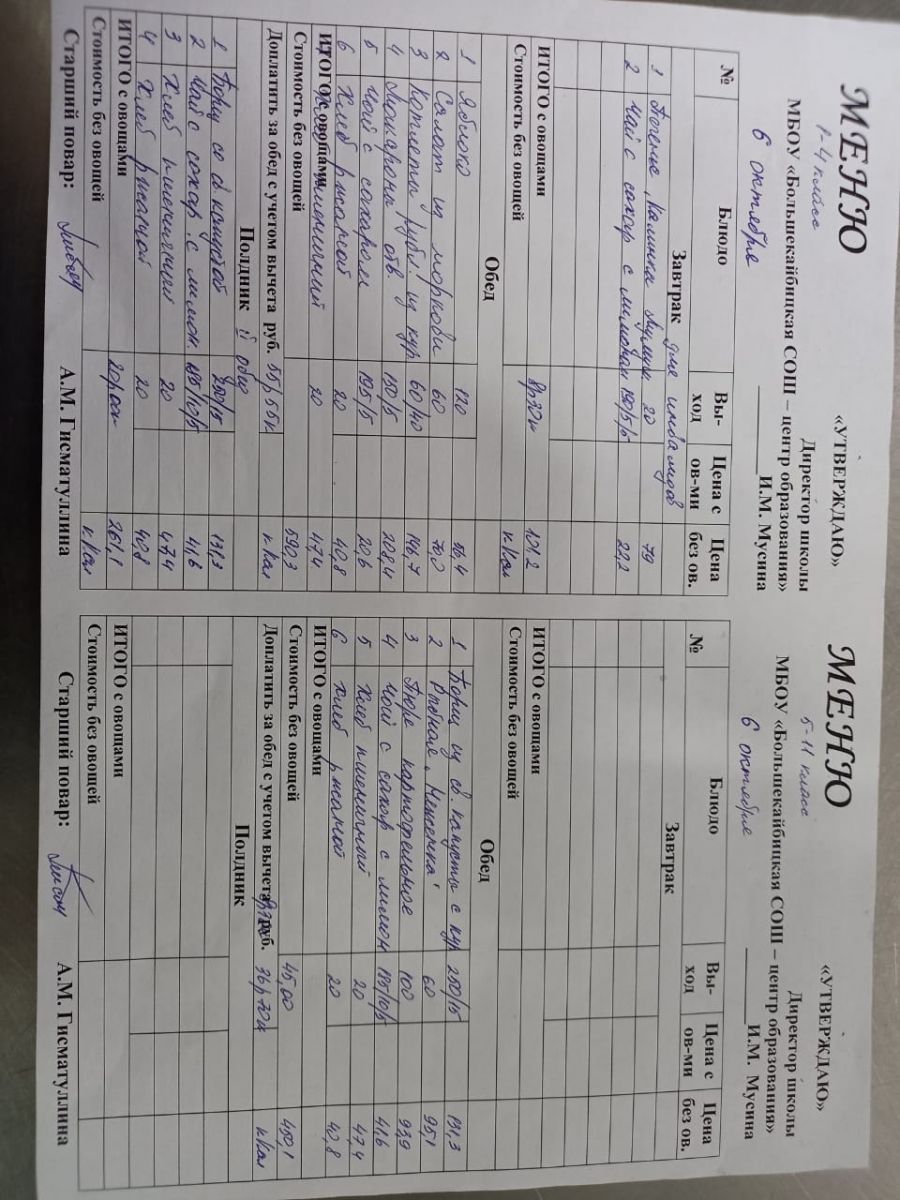 «УТВЕРЖДАЮ»
Директор школы
МБОУ «Большекайбицкая СОШ – центр образования»
И.М. Мусина
МЕНЮ
1-4 класс
6 октября
№ Блюдо Вы-ход Цена с ов-ми Цена без ов.
Завтрак для инвалидов
1 Печенье 20 79
2 Чай с сахар с лимоном 190/5/5 22,2
ИТОГО с овощами 8р20к 101,2
Стоимость без овощей ккал
Обед
1 Яблоко 120 56,4
2 Салат из моркови 60 70,0
3 Котлеты руб. из кур 60/40 146,7
4 Макароны отв 150/5 208,4
5 Чай с сахаром 195/5 20,6
6 Хлеб ржаной 20 40,8
ИТОГО с овощами 20 47,4
Стоимость без овощей 590,3
Доплатить за обед с учетом вычета руб. 55р55к ккал
Полдник
1 Борщ со св капустой 250/15 131,3
2 Чай с сахар. с лимон 195/10/5 41,6
3 Хлеб пшеничный 20 47,4
4 Хлеб ржаной 20 40,8
ИТОГО с овощами 261,1
Стоимость без овощей ккал
Старший повар: А.М. Гисматуллина
«УТВЕРЖДАЮ»
Директор школы
МБОУ «Большекайбицкая СОШ – центр образования»
И.М. Мусина
МЕНЮ
5-11 класс
6 октября
№ Блюдо Вы-ход Цена с ов-ми Цена без ов.
Завтрак
ИТОГО с овощами
Стоимость без овощей
Обед
1 Борщ из св. капусты с кур 250/15 131,3
2 60 95,1
3 Пюре картофельное 100 93,9
4 Чай с сахар с лимон 195/10/5 41,6
5 Хлеб пшеничный 20 47,4
6 Хлеб ржаной 20 40,8
ИТОГО с овощами
Стоимость без овощей 45,00 450,1
Доплатить за обед с учетом вычета руб. 36р70к ккал
Полдник
ИТОГО с овощами
Стоимость без овощей
Старший повар: А.М. Гисматуллина